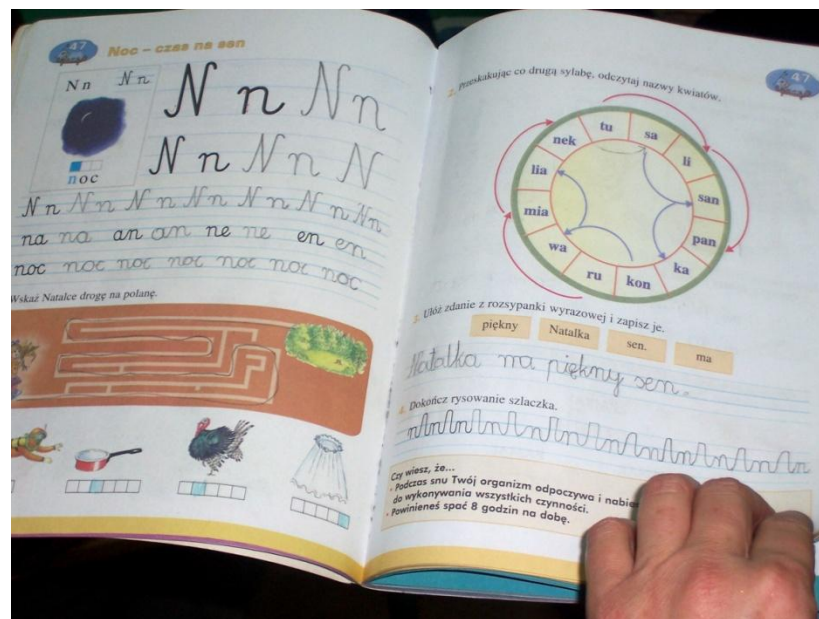 47
Noc – czas na sen
N n N n
N n N n
noc
N n N n N
N n N n N n N n N n N n N n
na na an an ne ne en en
noc noc noc noc noc noc noc
Wskaż Natalce drogę na polanę.
47
2. Przeskakując co drugą sylabę, odczytaj nazwy kwiatów.
tu
sa
li
san
pan
ka
kon
ru
wa
mia
lia
nek
3. Ułóż zdanie z rozsypanki wyrazowej i zapisz je.
piękny
Natalka
sen.
ma
Natalka ma piękny sen.
4. Dokończ rysowanie szlaczka.
Czy wiesz, że...
• Podczas snu Twój organizm odpoczywa i
do wykonywania wszystkich czynności.
• Powinieneś spać 8 godzin na dobę.